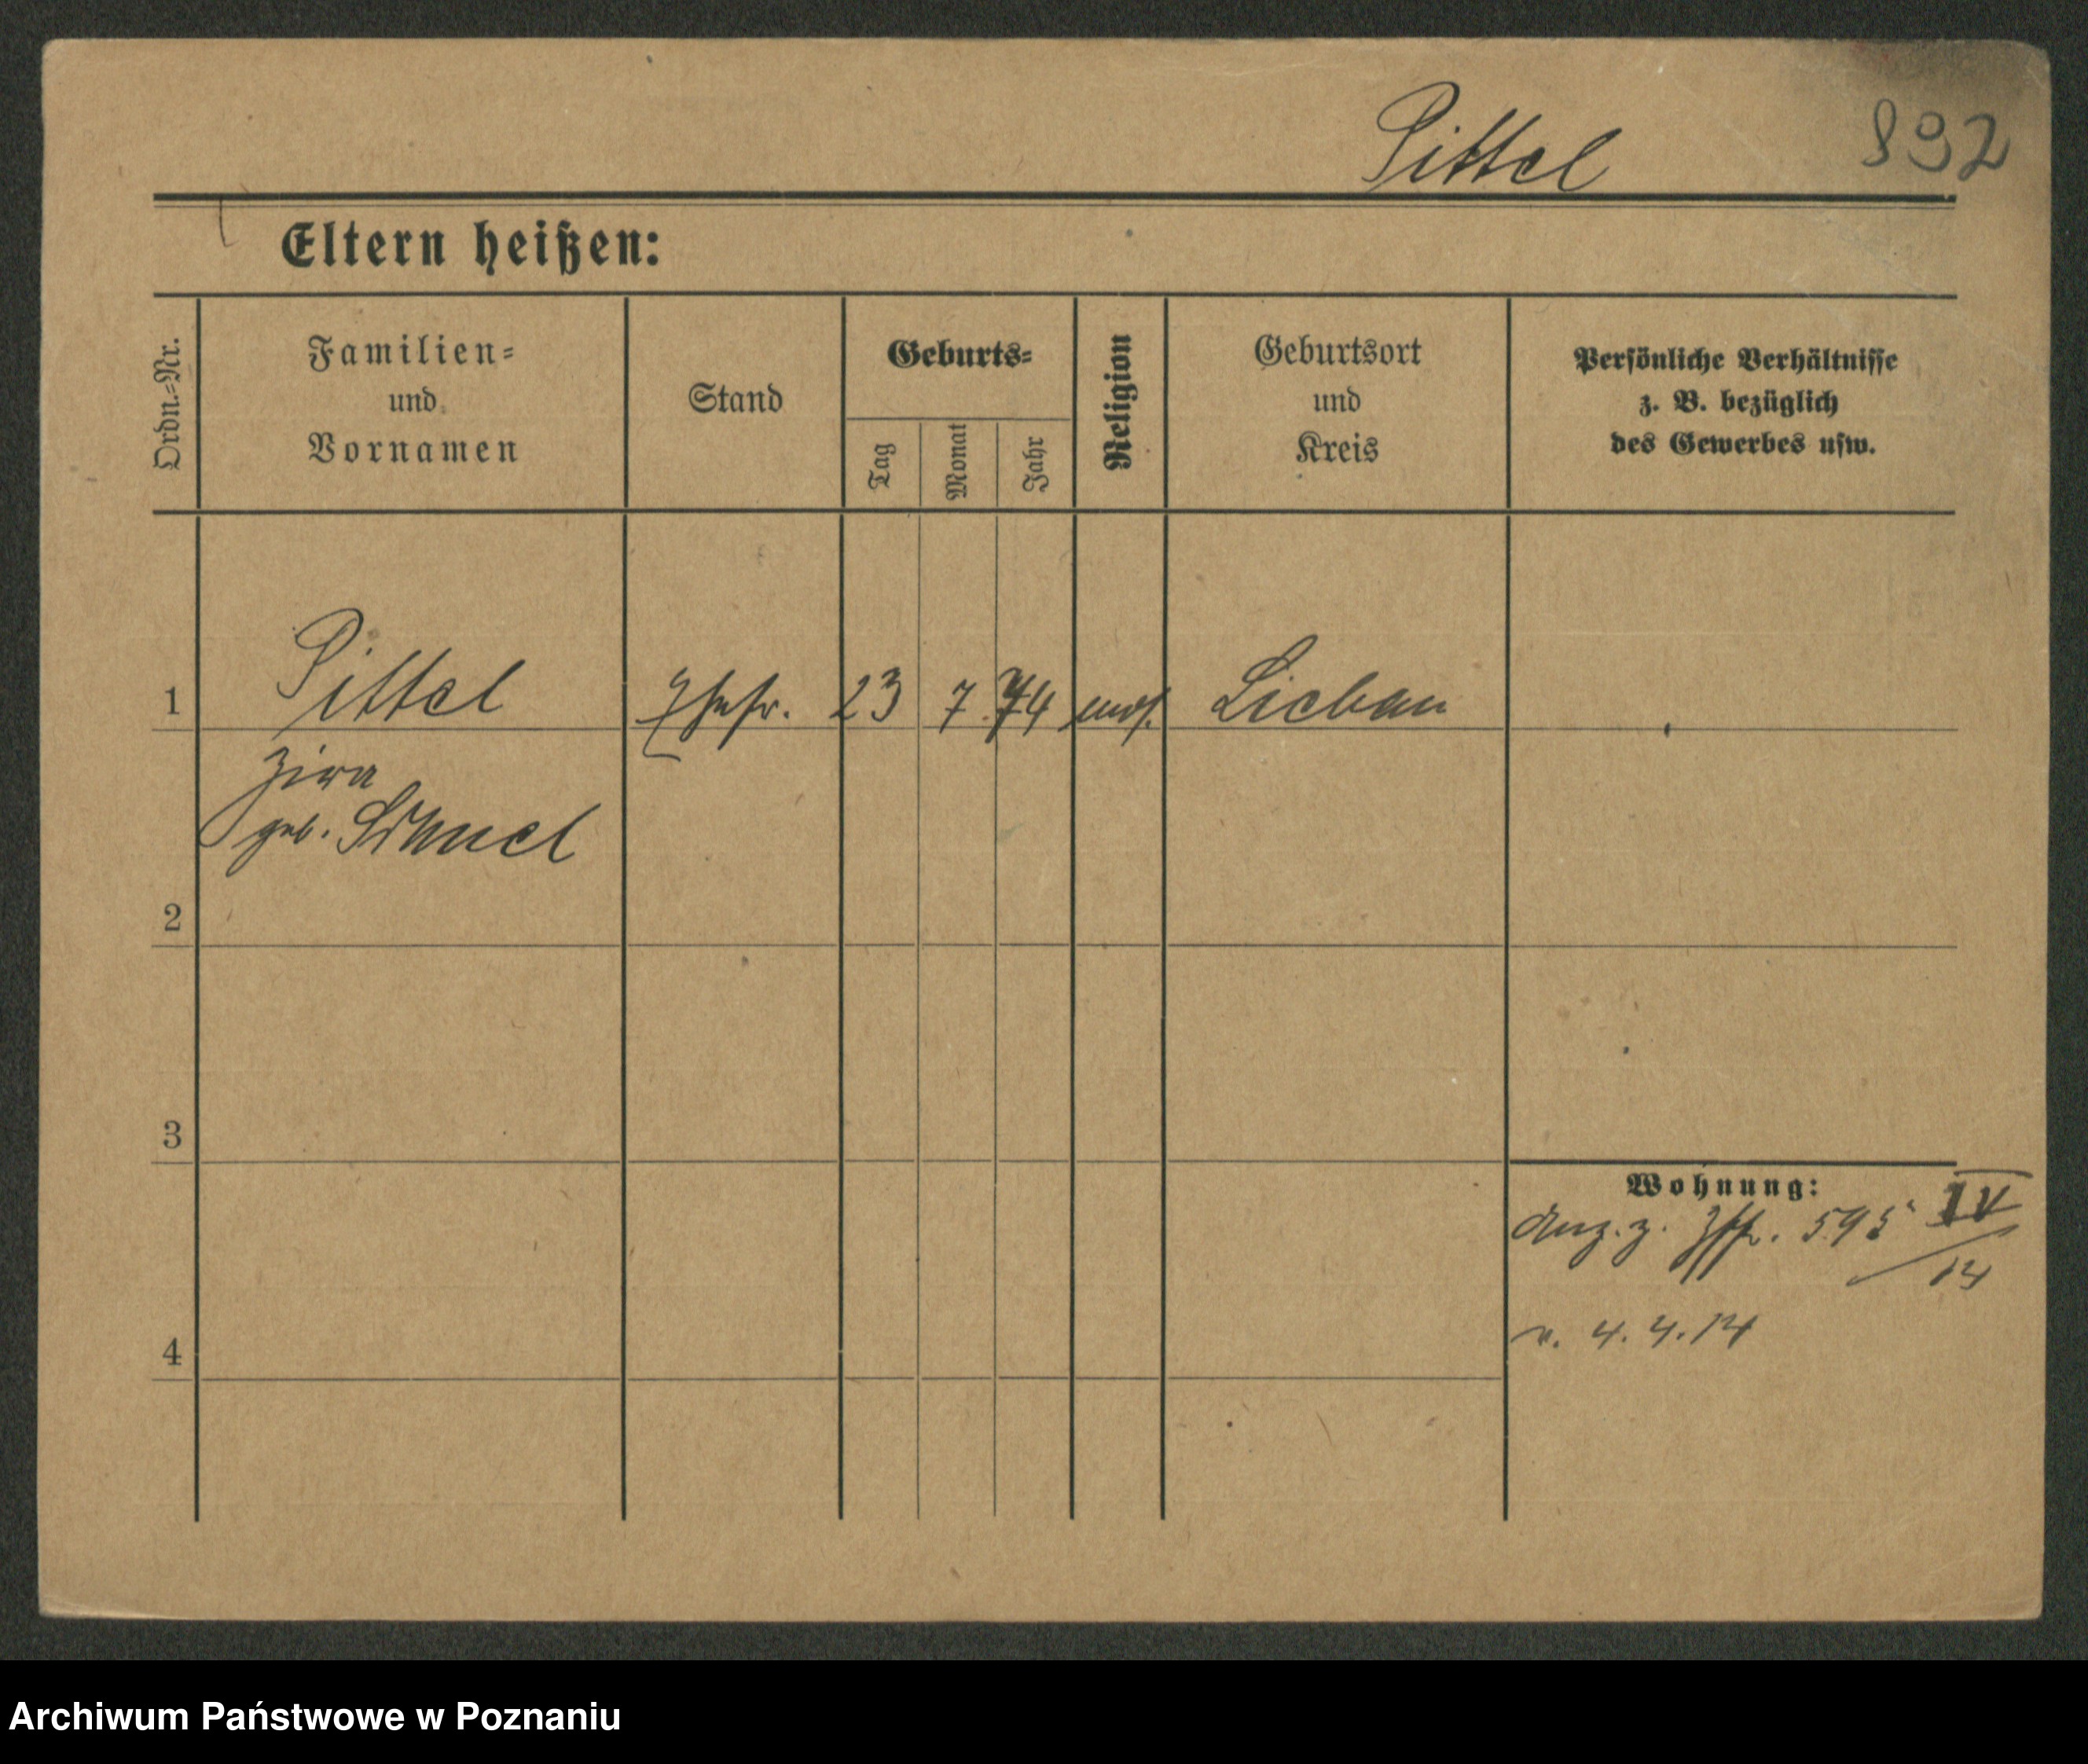 Pittel 892
Eltern heißen:
Ordn.-Nr.
Familien-
und
Vornamen
Stand
Geburts-
Tag
Monat
Jahr
Religion
Geburtsort
und
Kreis
Persönliche Verhältnisse
z. B. bezüglich
des Gewerbes usw.
1 Pittel Ehefr. 23 7. 74 mos. Liebau
geb.
2
3
4
Wohnung:
Anz. z. 595 IV
/14
v. 4. 4. 14
Archiwum Państwowe w Poznaniu